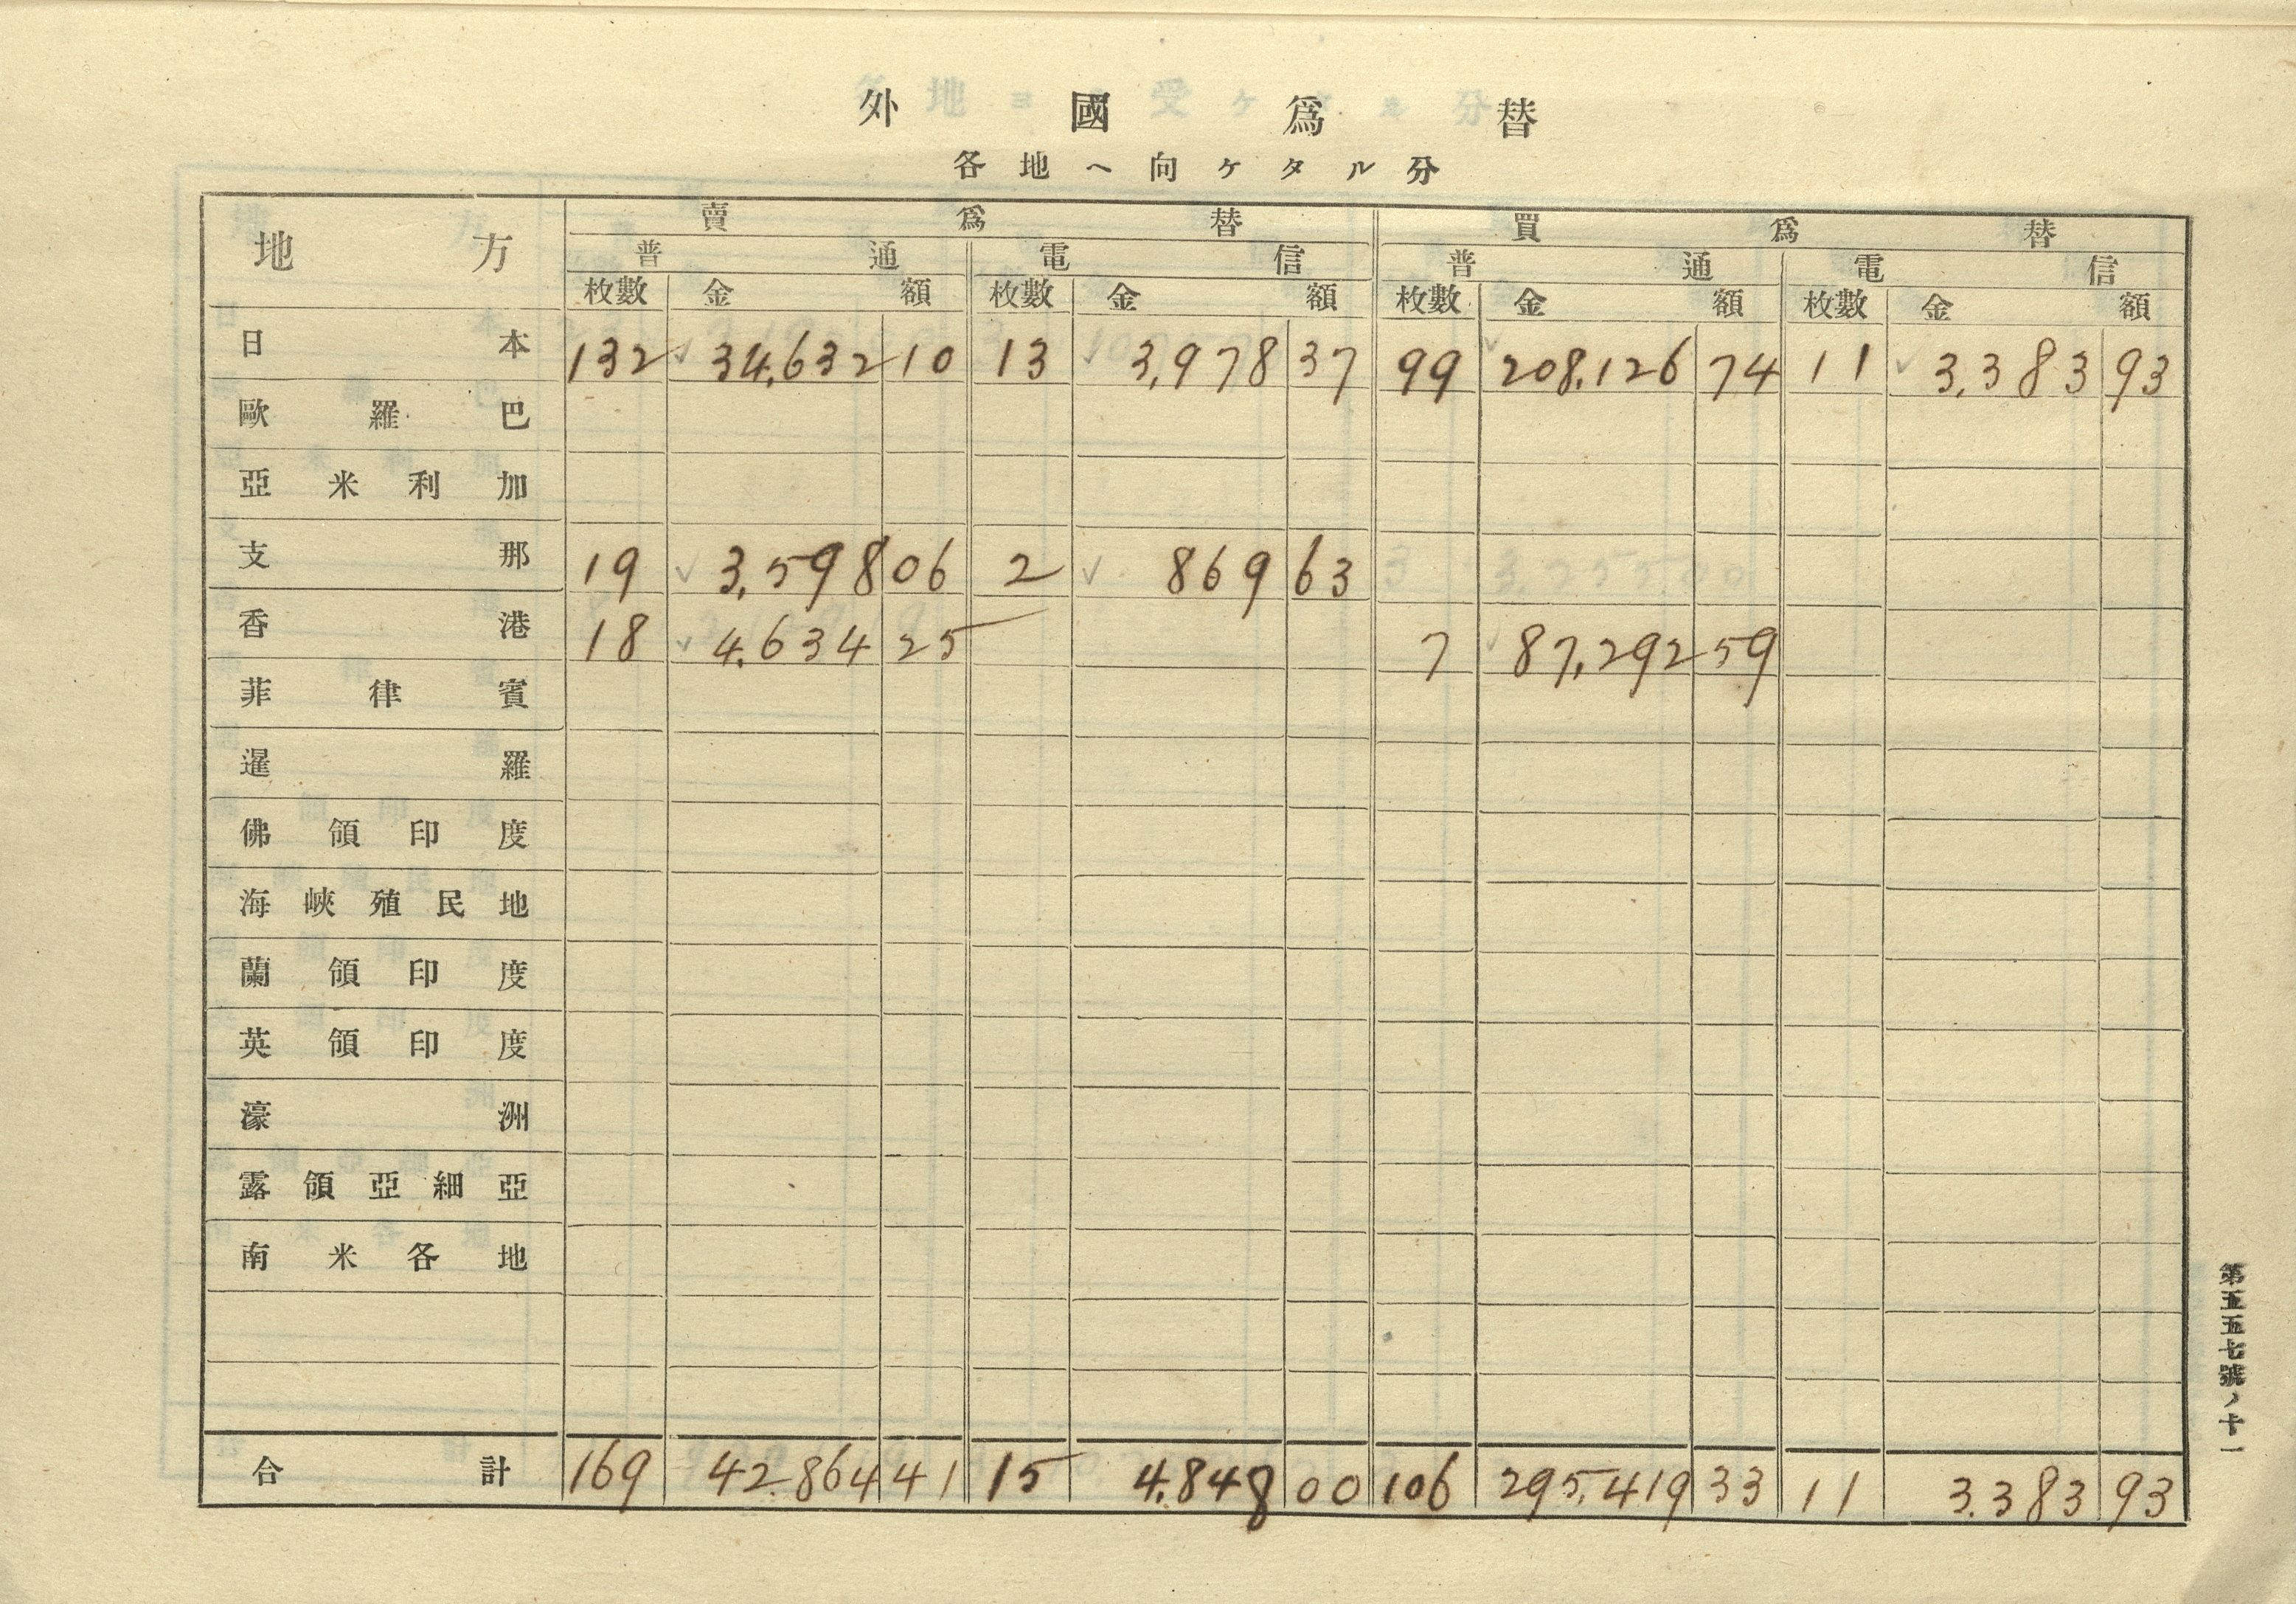 外國爲替
各地へ向ケタル分
地方 賣爲替 買爲替
普通 電信 普通 電信
枚數 金額 枚數 金額 枚數 金額 枚數 金額
日本 132 34,632 10 13 3,978 37 99 208,126 74 11 3,383 93
歐羅巴
亞米利加
支那 19 3,598 06 2 869 63
香港 18 4,634 25 7 87,292 59
菲律賓
暹羅
佛領印度
海峽殖民地
蘭領印度
英領印度
濠洲
露領亞細亞
南米各地
合計 169 42.864 41 15 4,848 00 106 295,419 33 11 3,383 93
第五五七號ノ十一